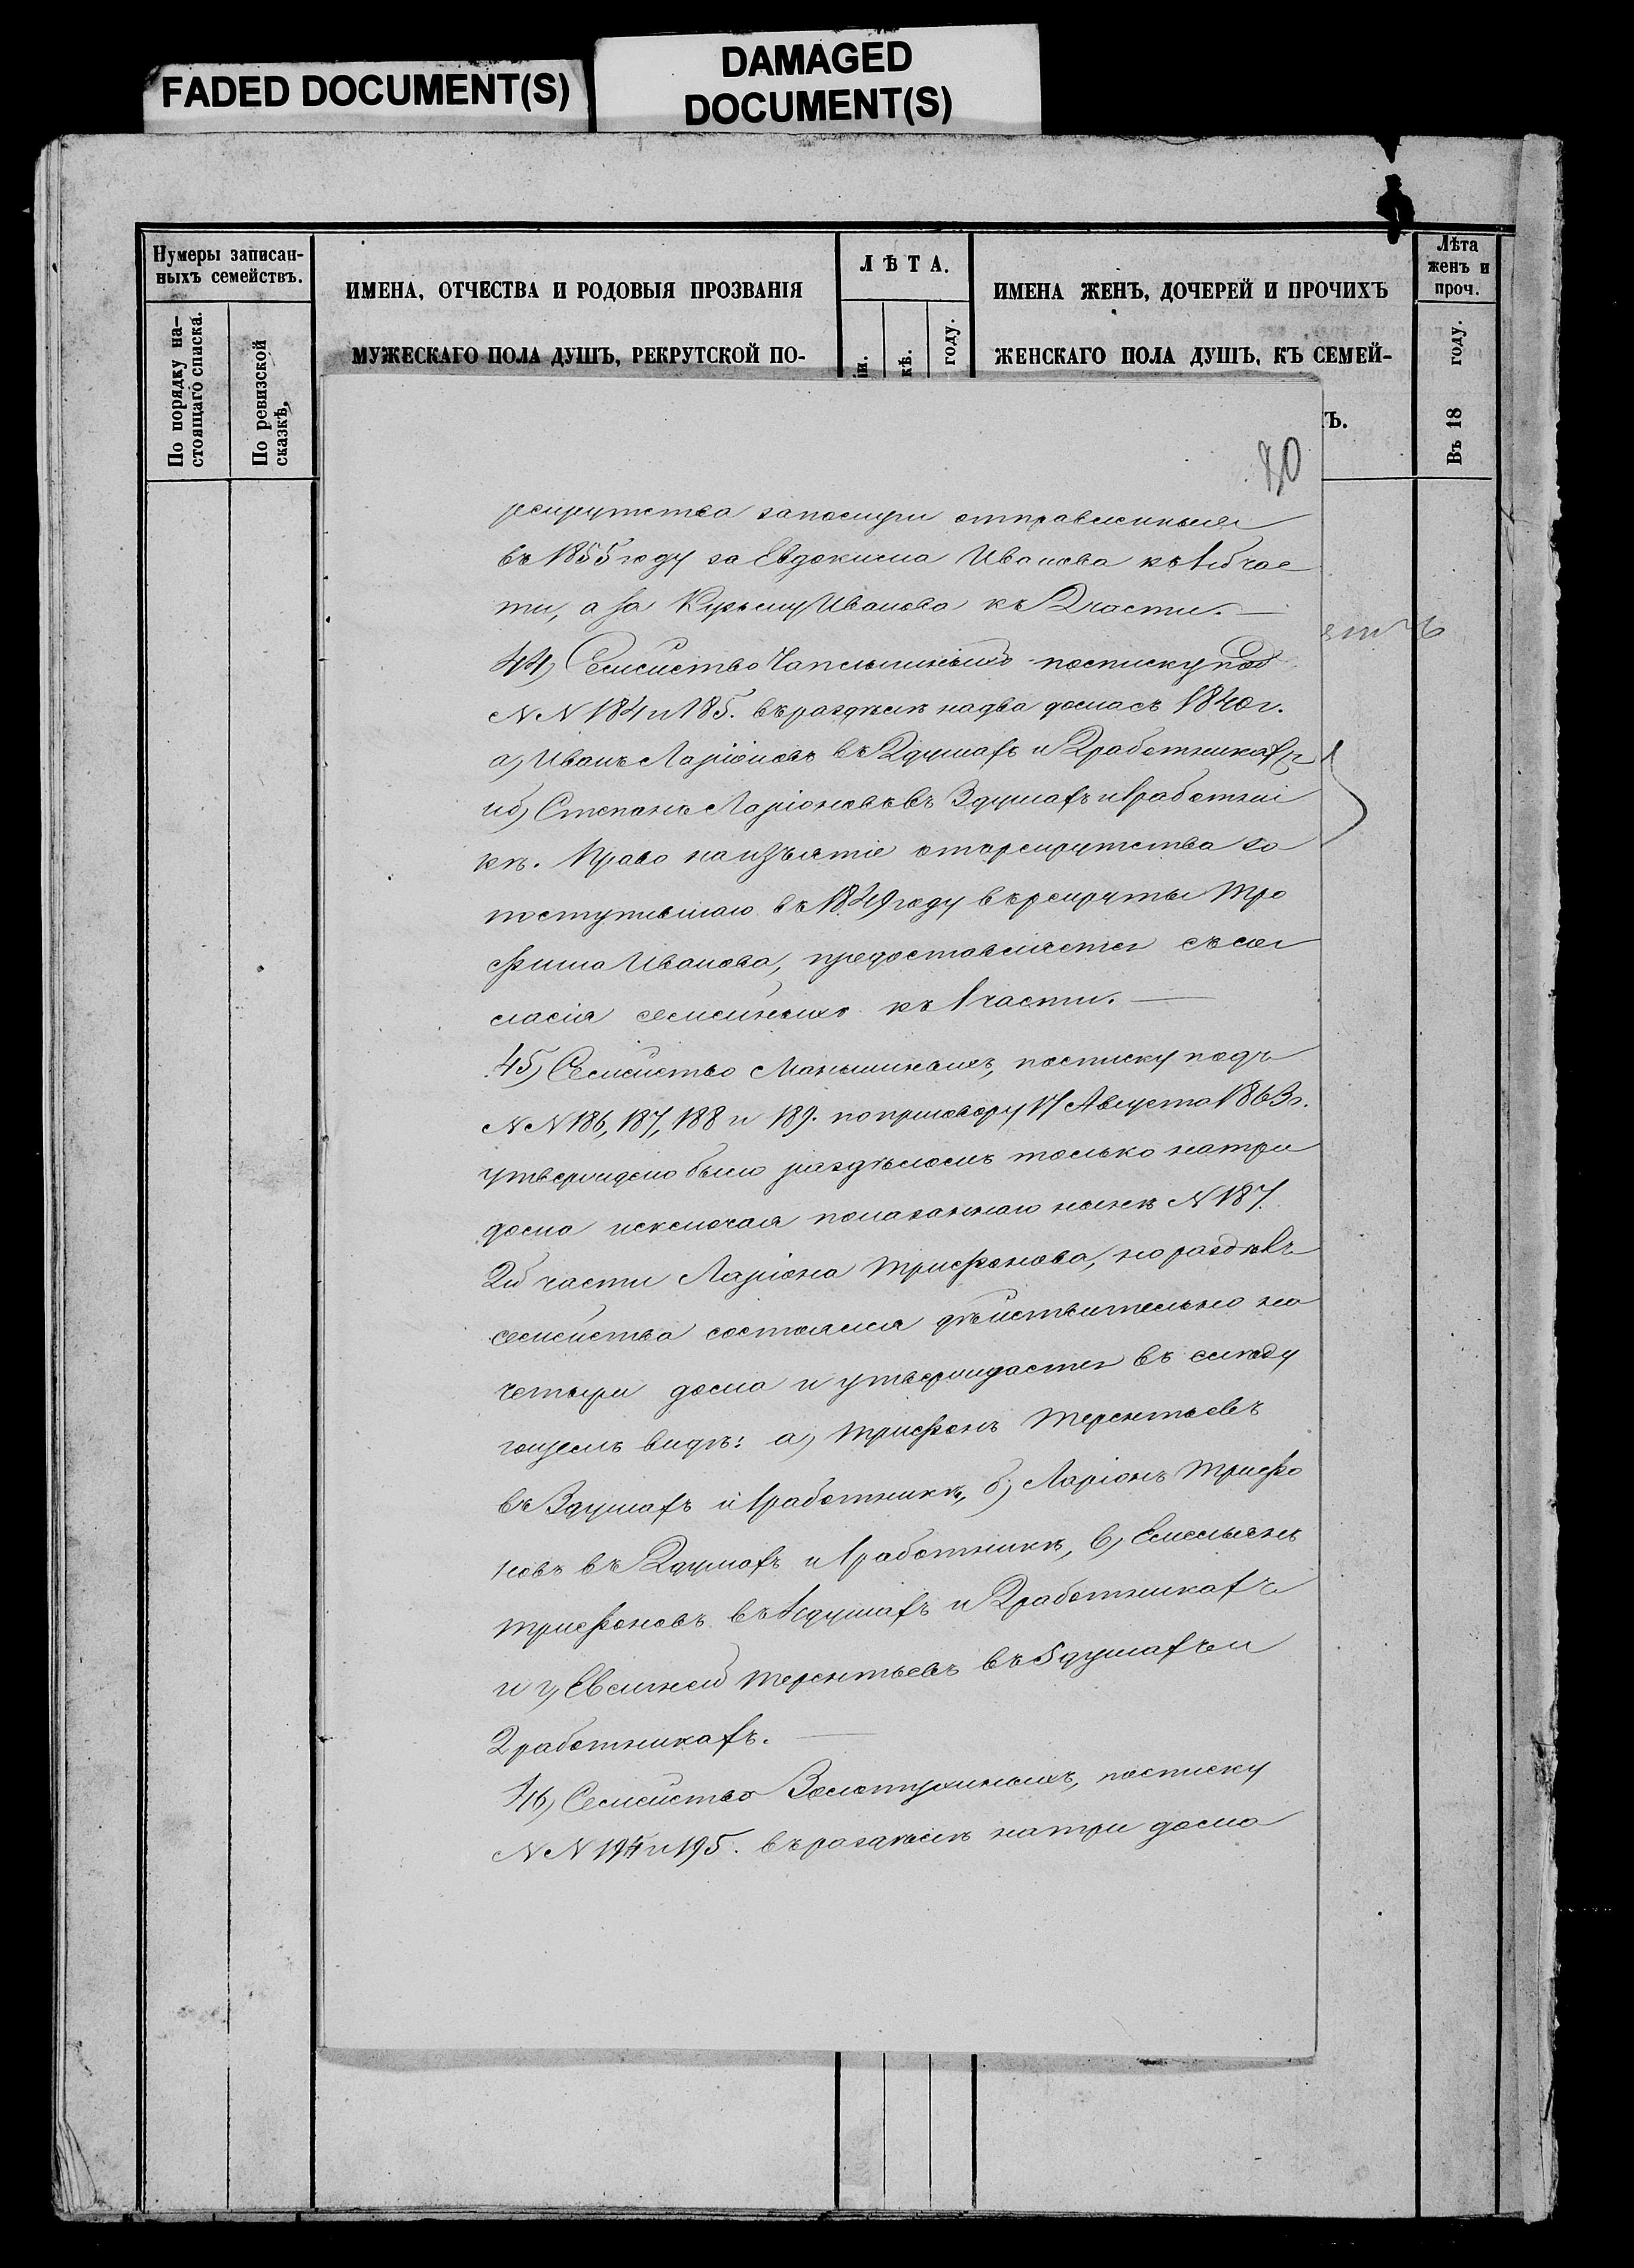 FADED DOCUMENT(S)
DAMAGED
DOCUMENT(S)
Нумеры записан-
ныхъ семействъ.
По порядку на-
стоящаго списка.
По ревизской
сказкѣ,
ИМЕНА, ОТЧЕСТВА И РОДОВЫЯ ПРОЗВАНІЯ
МУЖЕСКАГО ПОЛА ДУШЪ, РЕКРУТСКОЙ ПО-
ЛѢТА.
іи.
кѣ.
году.
ИМЕНА ЖЕНЪ, ДОЧЕРЕЙ И ПРОЧИХЪ
ЖЕНСКАГО ПОЛА ДУШЪ, КЪ СЕМЕЙ-
Ъ.
Лѣта
женъ и
проч.
Въ 18 году.
80
рекрутства
въ 1855 году за Евдокима Иванова къ 1й час
ти, а за Кузьму Иванова къ 2 части.
44) Семейство по списку под
N N 184 и 185. въ раздѣлѣ на два дома съ 1840 г.
а) Иванъ Ларіоновъ въ 2 душахъ и 2 работникахъ
и б) Степанъ Ларіоновъ въ 3 душахъ и 1 работни
кѣ. Право на изъятіе отъ рекрутства за
поступившаго въ 1849 году въ рекруты Тро
фима Иванова, предоставляется съ сог
ласія семейныхъ къ 1 части.
45) Семейство Маньшиныхъ, по списку подъ
N N 186, 187, 188 и 189. по приговору 17 Августа 1863 г.
утверждено было раздѣломъ только на три
дома исключая показаннаго нынѣ N 187.
2й части Ларіона Трифонова, но раздѣлъ
семейства состоялся дѣйствительно на
четыре дома и утверждается въ слѣду
ющемъ видѣ: а) Трифонъ Терентьевъ
въ 3 душахъ и 1 работникѣ, б) Ларіонъ Трифо
новъ въ 2 душахъ и 1 работникѣ, в) Емельянъ
Трифоновъ въ 4 душахъ и 2 работникахъ
и г) Евсигней Терентьевъ въ 5 душахъ и
2 работникахъ.
46) Семейство Золотухиныхъ, по списку
N N 194 и 195. въ раздѣлѣ на три дома